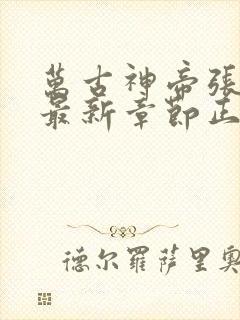 萬古神帝張
最新章節正
德尔羅萨里奥